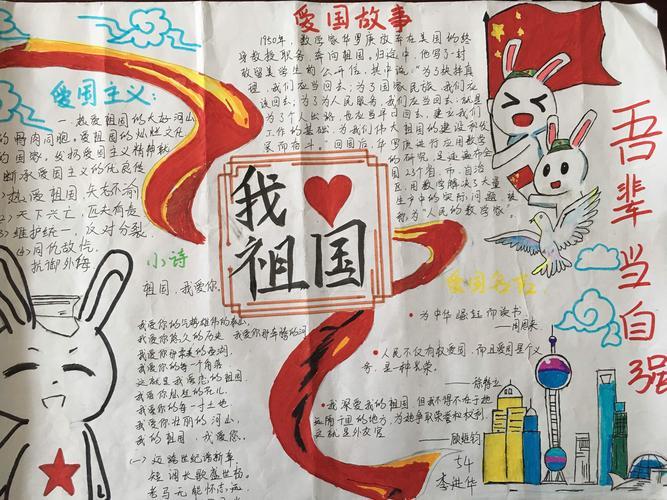 爱国故事
1950年，数学家华罗庚放弃在美国的终
身教授职务，奔向祖国。归途中，他写了一封
致留美学生的公开信，其中说："为了抉择真
理，我们应当回去；为了国家民族，我们应
该回去；为了为人民服务，我们应当回去；就是
为了个人出路，也应当早日回去，建立我们
工作的基础，为我们伟大祖国的建设和发
展而奋斗。"回国后，华罗庚进行应用数学
的研究，足迹遍布全
国23个省、市、自治
区，用数学解决了大量
生产中的实际问题，被
称为"人民的数学家"。
爱国主义：
一.热爱祖国的大好河山
的骨肉同胞。爱祖国的灿烂文化
的国家。发扬爱国主义精神就
断承爱国主义的优良传
(1)热爱祖国，矢志不渝
(2)天下兴亡，匹夫有责
(3)维护统一，反对分裂
(4)同仇敌忾，
抗御外侮
我
祖国
小诗
祖国，我爱你。
我爱你悠久的历史
我爱你那奔腾的河
我爱你的每一个角落
这就是我深恋的祖国
我爱你的每一寸土地
我爱你壮丽的河山
我的祖国，我爱您。
(一)迈跨世纪谱新年
短调长歌盛世扬
爱国名句
为中华崛起而读书
——周恩来
人民不仅有权爱国，而且爱国是个义
务，是一种光荣。
——徐特立
我深爱我的祖国，但我不得不在于她
——顾维钧
54
李进华
吾辈当自强